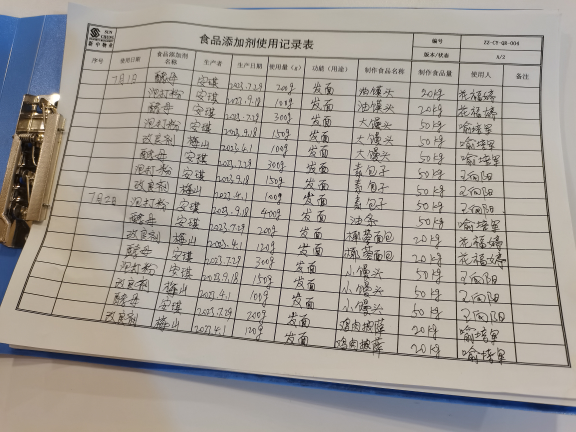 食品添加剂使用记录表
编号 ZZ-CY-QR-004
版本/状态 A/2
序号 使用日期 食品添加剂名称 生产者 生产日期 使用量(g) 功能(用途) 制作食品名称 制作食品量 使用人 备注
7月1日 酵母 安琪 2023.7.29 200g 发面 油馒头 20kg 花福婷
泡打粉 安琪 2023.9.18 100g 发面 油馒头 20kg 花福婷
酵母 安琪 2023.7.29 300g 发面 大馒头 50kg 喻培军
泡打粉 安琪 2023.9.18 150g 发面 大馒头 50kg 喻培军
改良剂 梅山 2023.4.1 100g 发面 大馒头 50kg 喻培军
酵母 安琪 2023.7.29 300g 发面 素包子 50kg 王向阳
泡打粉 安琪 2023.9.18 150g 发面 素包子 50kg 王向阳
改良剂 梅山 2023.4.1 100g 发面 素包子 50kg 王向阳
7月2日 泡打粉 安琪 2023.9.18 400g 发面 油条 50kg 喻培军
酵母 安琪 2023.7.29 200g 发面 面包 20kg 花福婷
改良剂 梅山 2023.4.1 120g 发面 面包 20kg 花福婷
酵母 安琪 2023.7.29 300g 发面 小馒头 50kg 王向阳
泡打粉 安琪 2023.9.18 150g 发面 小馒头 50kg 王向阳
改良剂 梅山 2023.4.1 100g 发面 小馒头 50kg 王向阳
酵母 安琪 2023.7.29 200g 发面 鸡肉披萨 20kg 喻培军
改良剂 梅山 2023.4.1 120g 发面 鸡肉披萨 20kg 喻培军